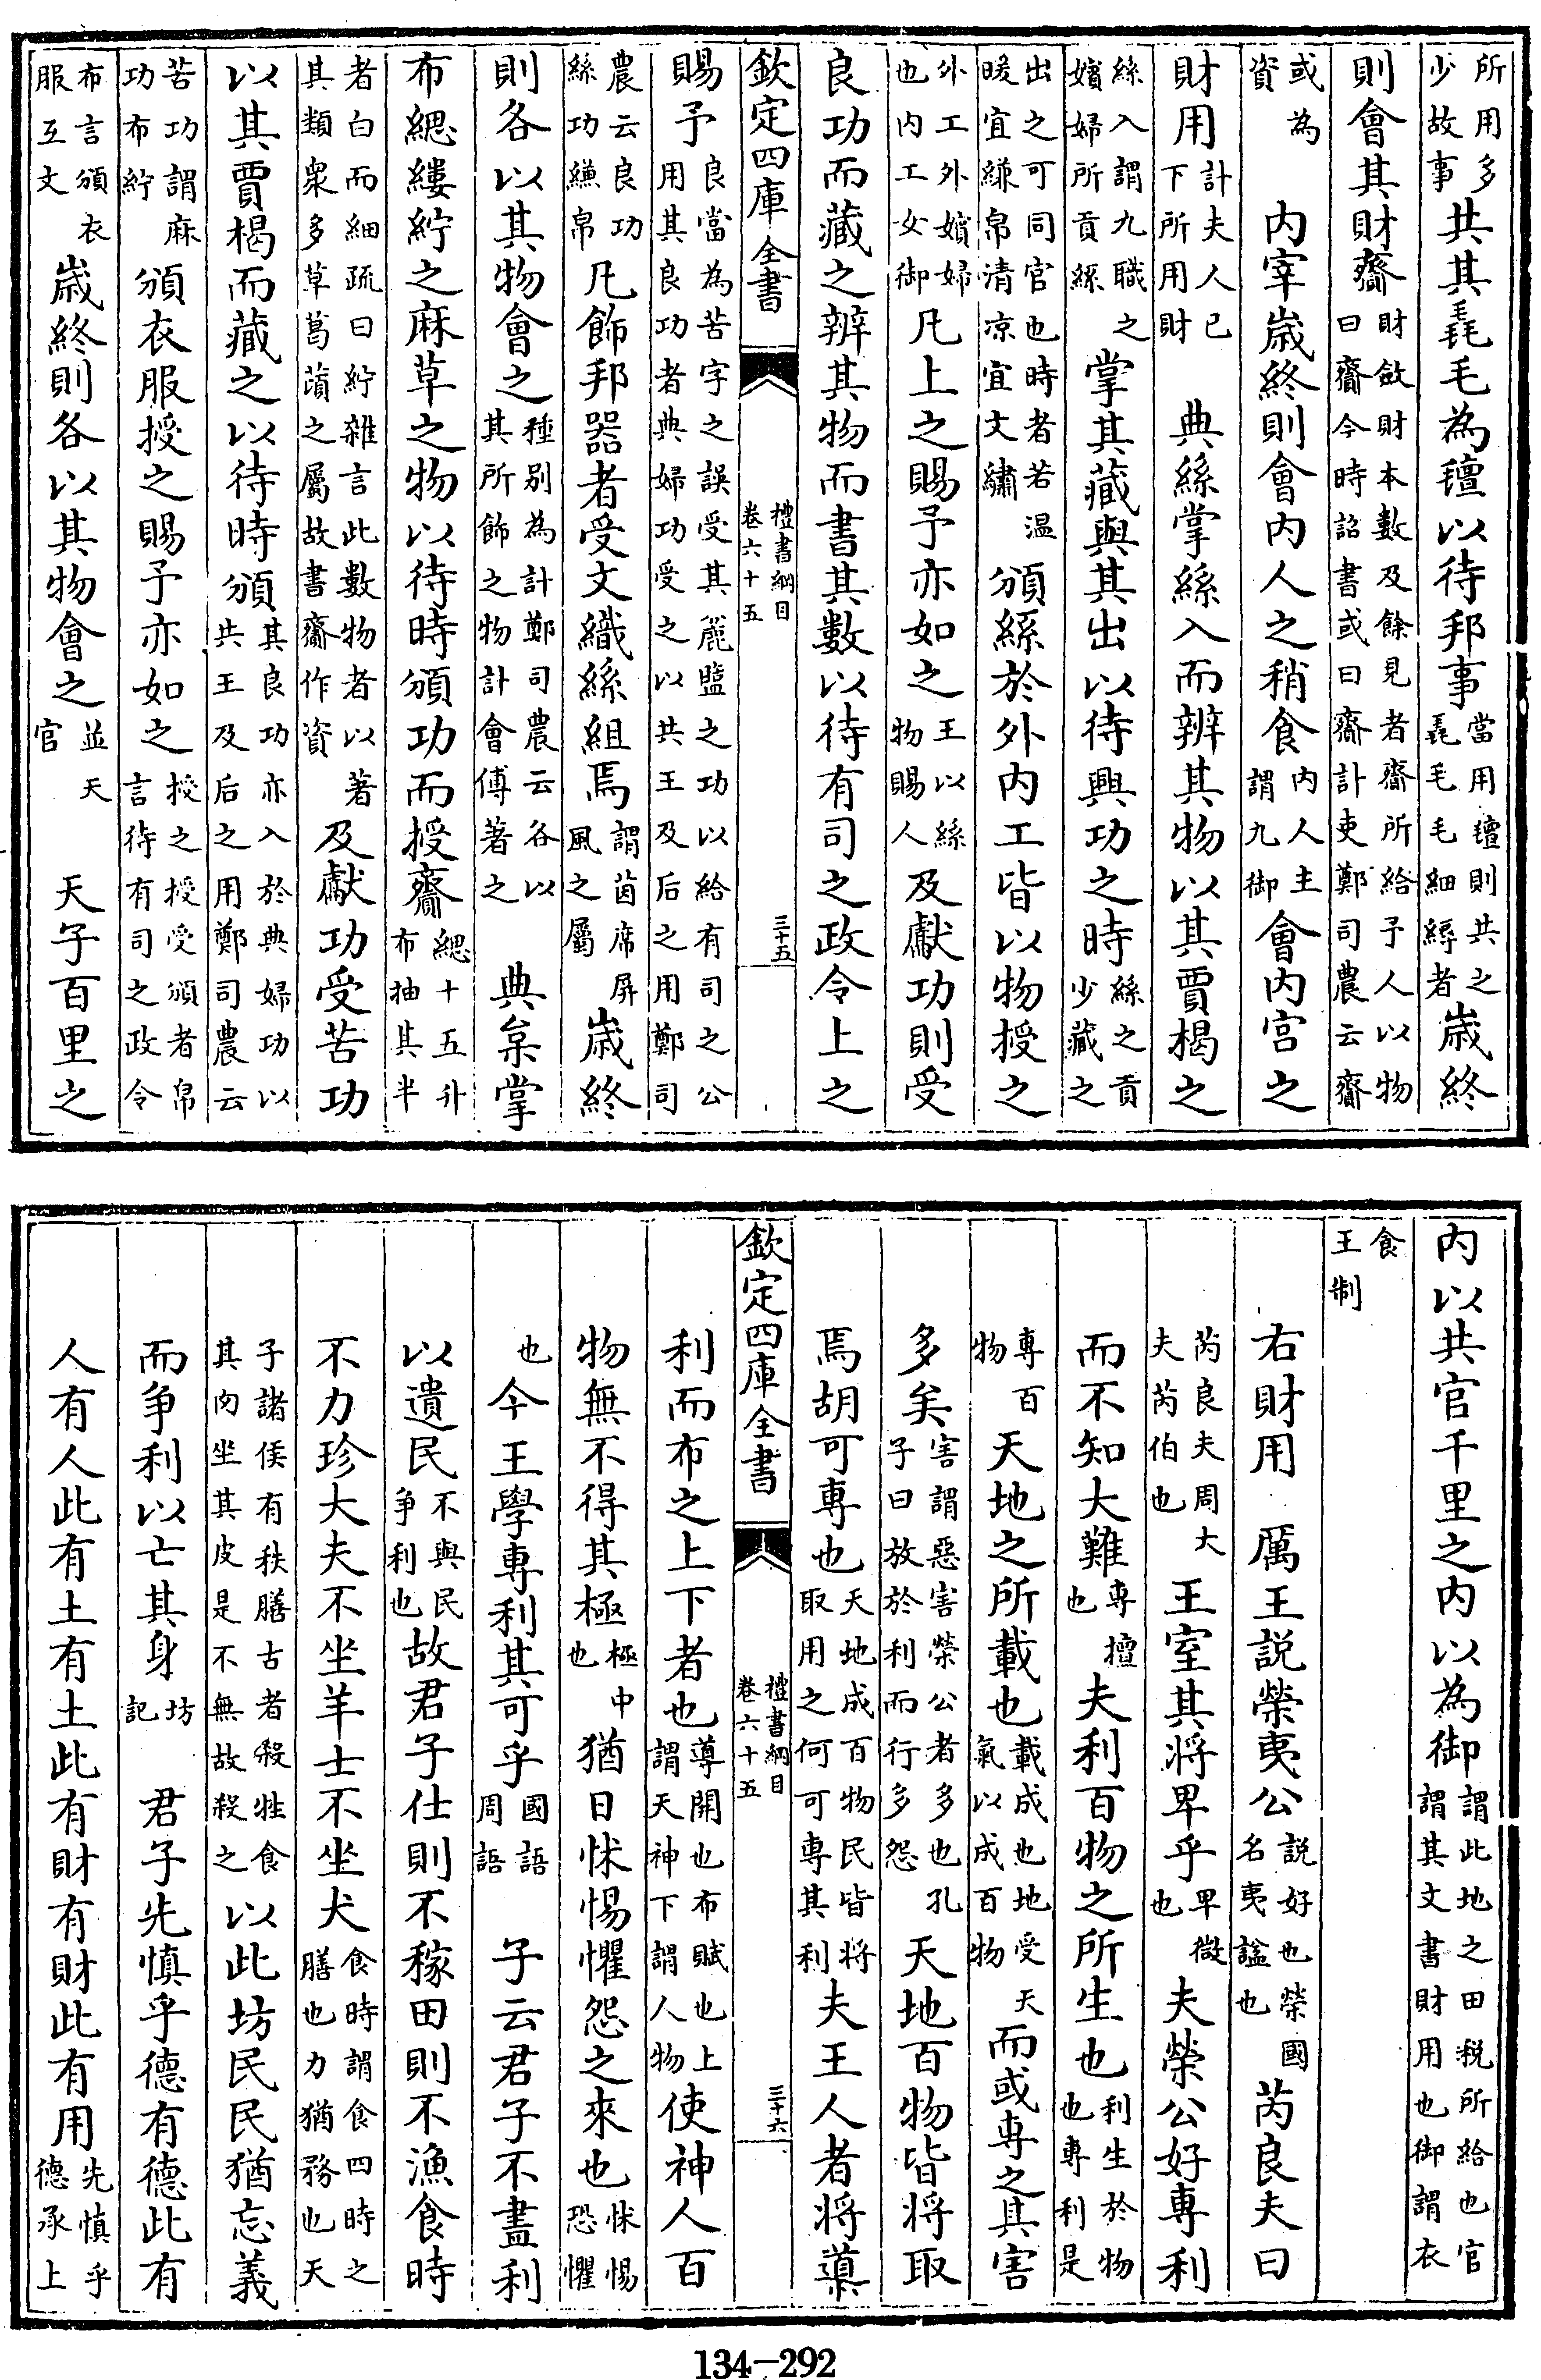 所用多少故事共其毳毛為氊以待邦事當用氊則共之毳毛毛細縟者歲終
則會其財齎財斂財本數及餘見者齎所給予人以物曰齎今時詔書或曰齎計吏鄭司農云齎
或為資　内宰歲終則會内人之稍食内人主謂九御會内宫之
財用計夫人已下所用財　典絲掌絲入而辨其物以其賈楬之
絲入謂九職之嬪婦所貢絲掌其藏與其出以待興功之時絲之貢少藏之
出之可同官也時者若温暖宜縑帛清凉宜文繡頒絲於外内工皆以物授之
外工外嬪婦也内工女御凡上之賜予亦如之王以絲物賜人及獻功則受
良功而藏之辨其物而書其數以待有司之政令上之
欽定四庫全書　禮書綱目卷六十五　三十五
賜予良當為苦字之誤受其麄盬之功以給有司之公用其良功者典婦功受之以共王及后之用鄭司
農云良功絲功縑帛凡飾邦器者受文織絲組焉謂茵席屏風之屬歲終
則各以其物會之種别為計鄭司農云各以其所飾之物計會傅著之　典枲掌
布緦縷紵之麻草之物以待時頒功而授齎緦十五升布抽其半
者白而細疏曰紵雜言此數物者以著其類衆多草葛蕢之屬故書齎作資及獻功受苦功
以其賈楬而藏之以待時頒其良功亦入於典婦功以共王及后之用鄭司農云
苦功謂麻功布紵頒衣服授之賜予亦如之授之授受頒者帛言待有司之政令
布言頒衣服互文歲終則各以其物會之並天官　天子百里之
内以共官千里之内以為御謂此地之田税所給也官謂其文書財用也御謂衣
食王制
右財用　厲王説榮夷公説好也榮國名夷諡也芮良夫曰
芮良夫周大夫芮伯也王室其將卑乎卑微也夫榮公好專利
而不知大難專擅也夫利百物之所生也利生於物也專利是
專百物天地之所載也載成也地受天氣以成百物而或專之其害
多矣害謂惡害榮公者多也孔子曰放於利而行多怨天地百物皆將取
焉胡可專也天地成百物民皆將取用之何可專其利夫王人者將導
欽定四庫全書　禮書綱目卷六十五　三十六
利而布之上下者也導開也布賦也上謂天神下謂人物使神人百
物無不得其極極中也猶日怵惕懼怨之來也怵惕恐懼
也今王學專利其可乎國語周語　子云君子不盡利
以遺民不與民爭利也故君子仕則不稼田則不漁食時
不力珍大夫不坐羊士不坐犬食時謂食四時之膳也力猶務也天
子諸侯有秩膳古者殺牲食其肉坐其皮是不無故殺之以此坊民民猶忘義
而爭利以亡其身坊記　君子先慎乎德有德此有
人有人此有土有土此有財有財此有用先慎乎德承上
134-292